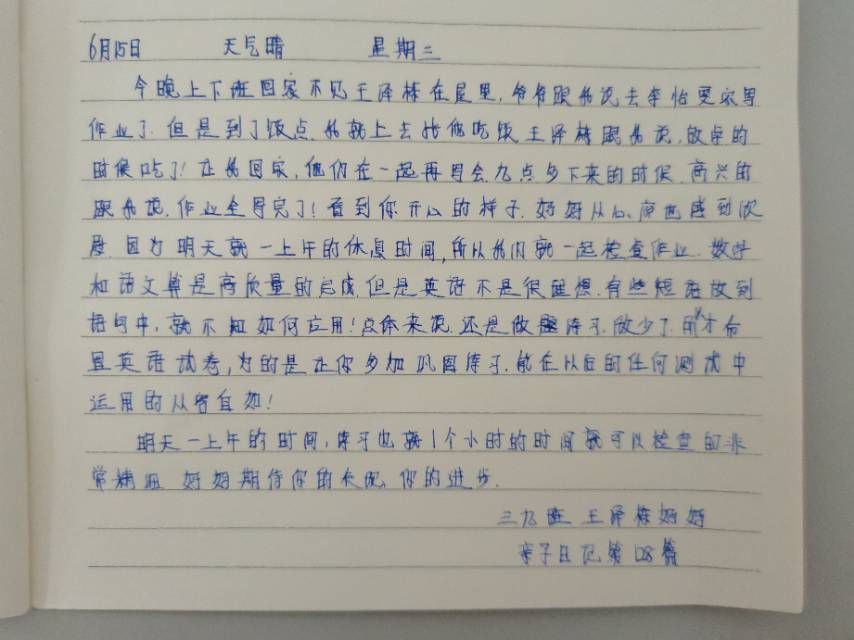 6月15日 天气晴 星期二
今晚上下班回家不见王泽栋在屋里,爷爷跟我说去李怡更家写
作业了.但是到了饭点.我就上去找他吃饭王泽栋跟我说,放学的
时候吃了!让我回家,他们在一起再写会.九点多下来的时候.高兴的
跟我说.作业全写完了!看到你开心的样子.妈妈从心底也感到欣
慰.因为明天就一上午的休息时间,所以我们就一起检查作业.数学
和语文算是高质量的完成.但是英语不是很理想.有些短语放到
语句中,就不知如何应用!总体来说.还是做练习.做少了.所以才布
置英语试卷,为的是让你多加巩固练习.能在以后的任何测试中
运用的从容自如!
明天一上午的时间,练习也就1个小时的时间就可以检查的非
常精细 妈妈期待你的 你的进步.
三九班 王泽栋妈妈
亲子日记第128篇